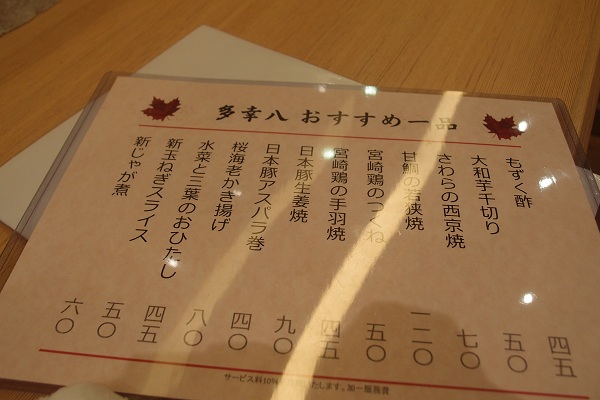 多幸八 おすすめ一品
もずく酢 四五
大和芋千切り 五〇
さわらの西京焼 七〇
甘鯛の若狭焼 一二〇
宮崎鶏のつくね 五〇
宮崎鶏の手羽焼 四五
日本豚生姜焼 九〇
日本豚アスパラ巻 四〇
桜海老かき揚げ 八〇
水菜と三葉のおひたし 四五
新玉ねぎスライス 五〇
新じゃが煮 六〇
サービス料10%